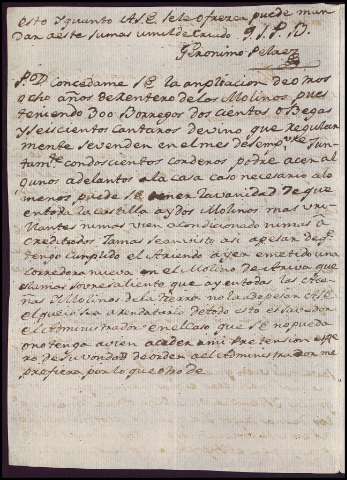 esto y quanto a S E sele ofrezca puede man
dar a este su mas umilde criado Q S P B.
Geronimo Pelaez
P.D. Concedame S E la ampliacion de otros
ocho años de Rentero de los Molinos pues
teniendo 300 Borregos dos cientas obegas
y seiscientos Cantaros de vino que regular
mente se venden en el mes de sempre Jun
tamte con doscientos Corderos podre acer al
gunos adelantos a la casa caso necesario a lo
menos puede S E tener la vanidad de que
en toda la Castilla ay dos Molinos mas vri
llantes ni mas vien acondicionado ni mas a
creditados Jamas se an visto asi apesar de qe
tengo cumplido el Ariendo ayer e metido una
Corredora nueva en el Molino de Arriva que
es la mas sovresaliente que ay en todas las Ace
ñas y Molinos de la tierra no la ado pesar a S E
el que sii su arendatario de todo esto es savedor
el Administrador en el caso que S E no pueda
o no tenga a vien aceder a mi pretension espe
ro de su vondad de orden a el Administrador me
prefiera por lo que otro de